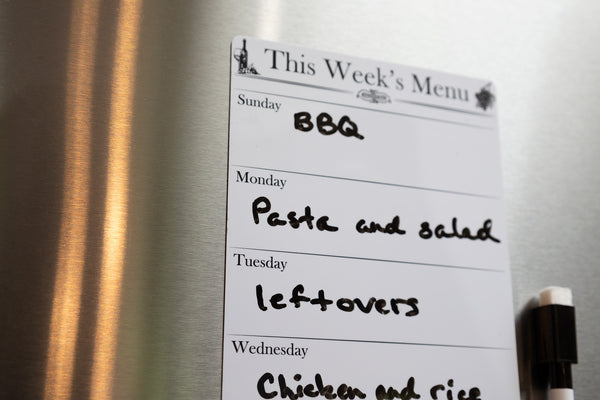 This Week's Menu
Sunday
BBQ
Monday
Pasta and salad
Tuesday
leftovers
Wednesday
Chicken and rice